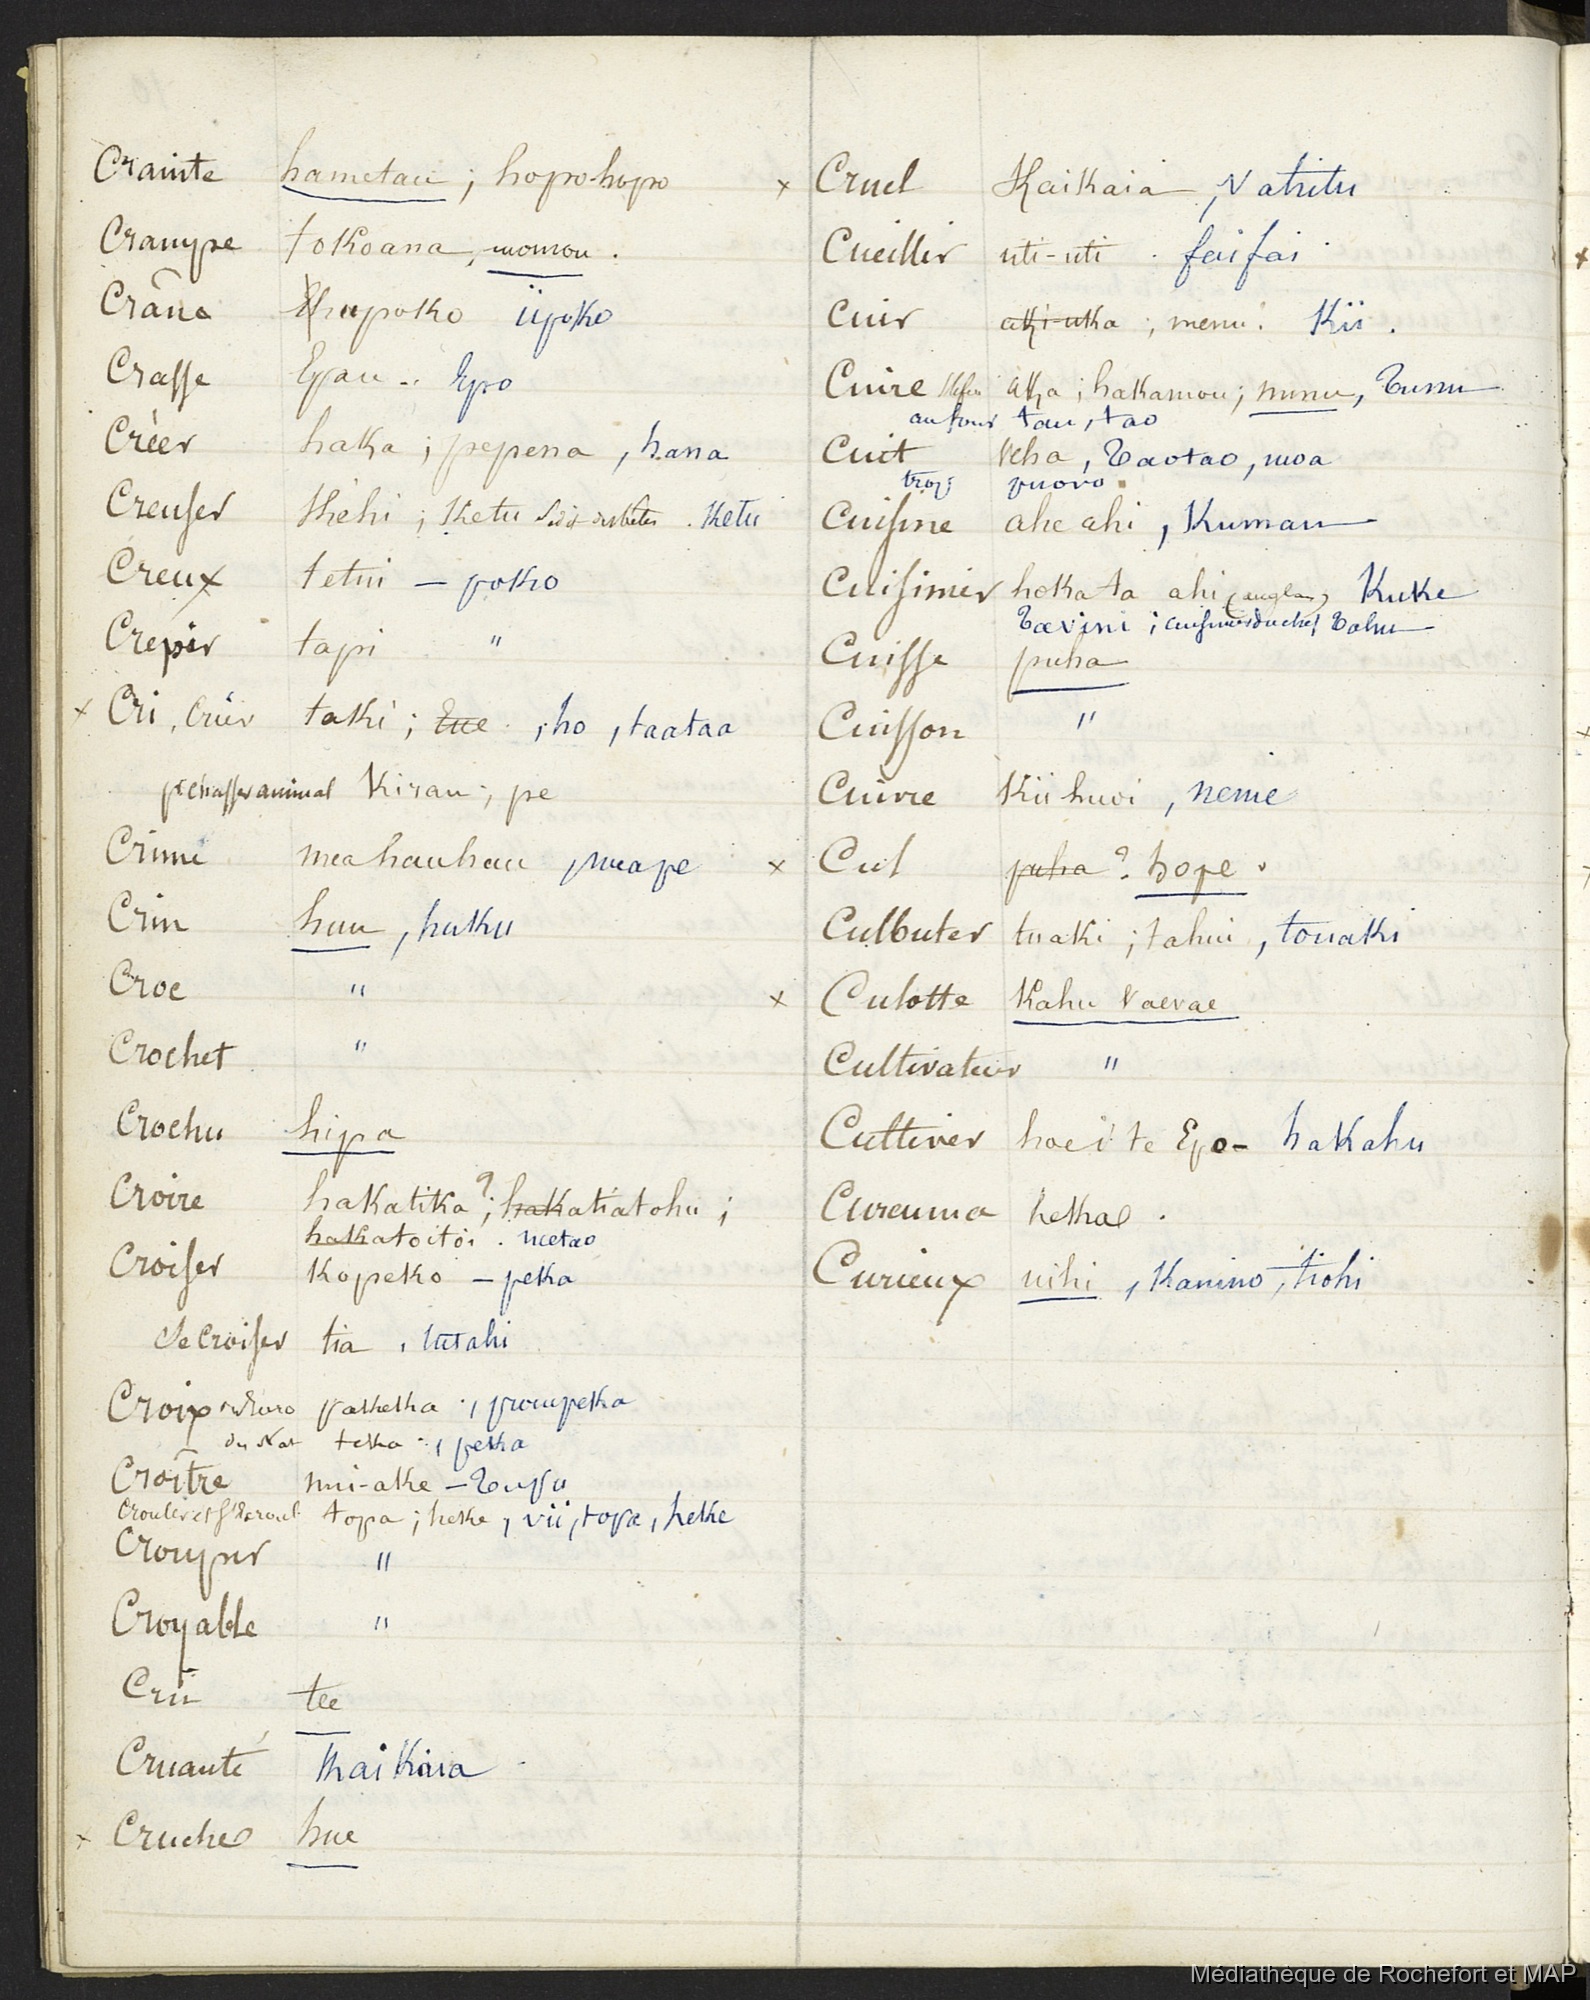 Crainte hametau ; hopohopo
Crampe tokoana, momou .
Crâne upoko üpoko
Crasse Epau .. Epo
Créer haka ; pepena , hana
Creuser Kéhi ; Ketu se dit des bêtes . Ketu
Creux tetui — poko
Crépir tapi "
x Cri, Crier taki ; Eue , ho , taataa
pr chasser animal Kirau ; pe
Crime mea hauhau , meape
Crin huu , huku
Croc "
Crochet "
Crochu hipa
Croire hakatika ? ; hakatiatohu ;
hakatoitoi . metao
Croiser Kopeko — peka
Se croiser tia , tutahi
Croix pakeka , poupeka
teka , peka
Croître nui-ake — Tupu
topa ; heke , vii , topa , heke
Croupir "
Croyable "
Crû tee
Cruauté Kaikaia
x Cruche hue
x Cruel Kaikaia , Vahitu
Cueillir uti-uti . faifai
Cuir aki-uka ; menu . Kii .
Cuire aka ; hakamou ; nunu , Tunu
au four tau , tao
Cuit Veha , Taotao , moa
trop puoro .
Cuisine ahe ahi , Kumau
Cuisinier hoka ta ahi (anglais) Kuke
Tavini ; Tahu
Cuisse puha
Cuisson "
Cuivre Kii huoi , neme
x Cul puha ? . hope .
Culbuter tuaki ; tahui , touaki
x Culotte Kahu Vaevae
Cultivateur "
Cultiver hoe i te Epo — hakahu
Curcuma hekae .
Curieux nihi , Kanino , tiohi
Médiathèque de Rochefort et MAP